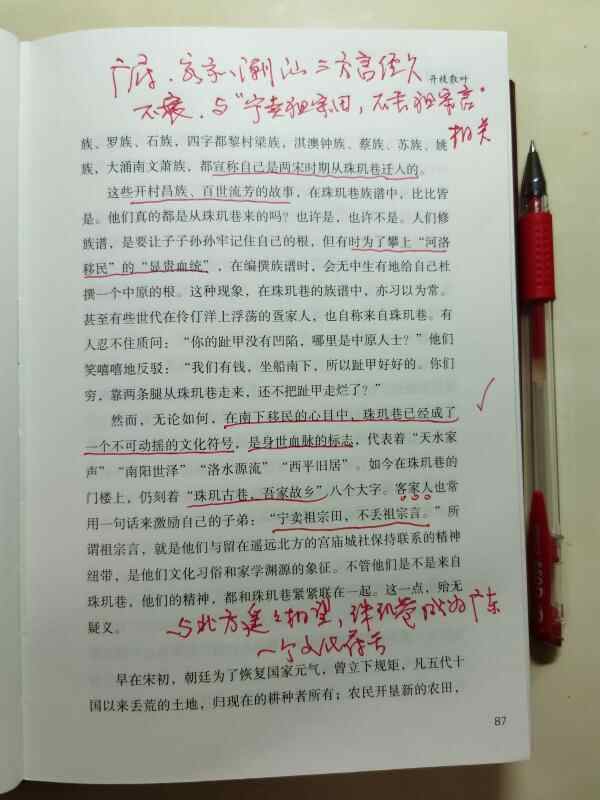 广府、客家、潮汕三方言经久
开枝散叶
不衰，与“宁卖祖宗田，不丢祖宗言”
相关
族、罗族、石族，四字都黎村梁族，淇澳钟族、蔡族、苏族、姚
族，大涌南文萧族，都宣称自己是两宋时期从珠玑巷迁人的。
这些开村昌族、百世流芳的故事，在珠玑巷族谱中，比比皆
是。他们真的都是从珠玑巷来的吗？也许是，也许不是。人们修
族谱，是要让子子孙孙牢记住自己的根，但有时为了攀上“河洛
移民”的“显贵血统”，在编撰族谱时，会无中生有地给自己杜
撰一个中原的根。这种现象，在珠玑巷的族谱中，亦习以为常。
甚至有些世代在伶仃洋上浮荡的疍家人，也自称来自珠玑巷。有
人忍不住质问：“你的趾甲没有凹陷，哪里是中原人士？”他们
笑嘻嘻地反驳：“我们有钱，坐船南下，所以趾甲好好的。你们
穷，靠两条腿从珠玑巷走来，还不把趾甲走烂了？”
然而，无论如何，在南下移民的心目中，珠玑巷已经成了
一个不可动摇的文化符号，是身世血脉的标志，代表着“天水家
声”“南阳世泽”“洛水源流”“西平旧居”。如今在珠玑巷的
门楼上，仍刻着“珠玑古巷，吾家故乡”八个大字。客家人也常
用一句话来激励自己的子弟：“宁卖祖宗田，不丢祖宗言。”所
谓祖宗言，就是他们与留在遥远北方的宫庙城社保持联系的精神
纽带，是他们文化习俗和家学渊源的象征。不管他们是不是来自
珠玑巷，他们的精神，都和珠玑巷紧紧联在一起。这一点，殆无
疑义。
与北方遥遥相望，珠玑巷成为广东
一个文化符号
早在宋初，朝廷为了恢复国家元气，曾立下规矩，凡五代十
国以来丢荒的土地，归现在的耕种者所有；农民开垦新的农田，
87